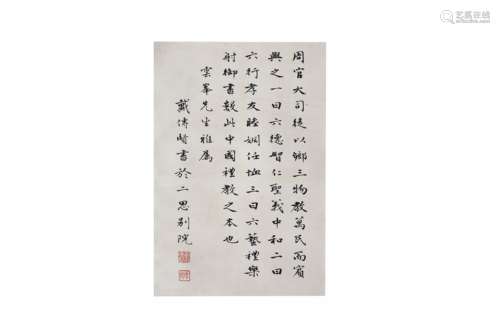 周官大司徒以鄉三物教萬民而賓
興之一曰六德智仁聖義中和二曰
六行孝友睦婣任恤三曰六藝禮樂
射御書數此中國禮教之本也
雲峯先生雅屬
戴傳賢書於二思別院
艺典中国
yidianchina.com